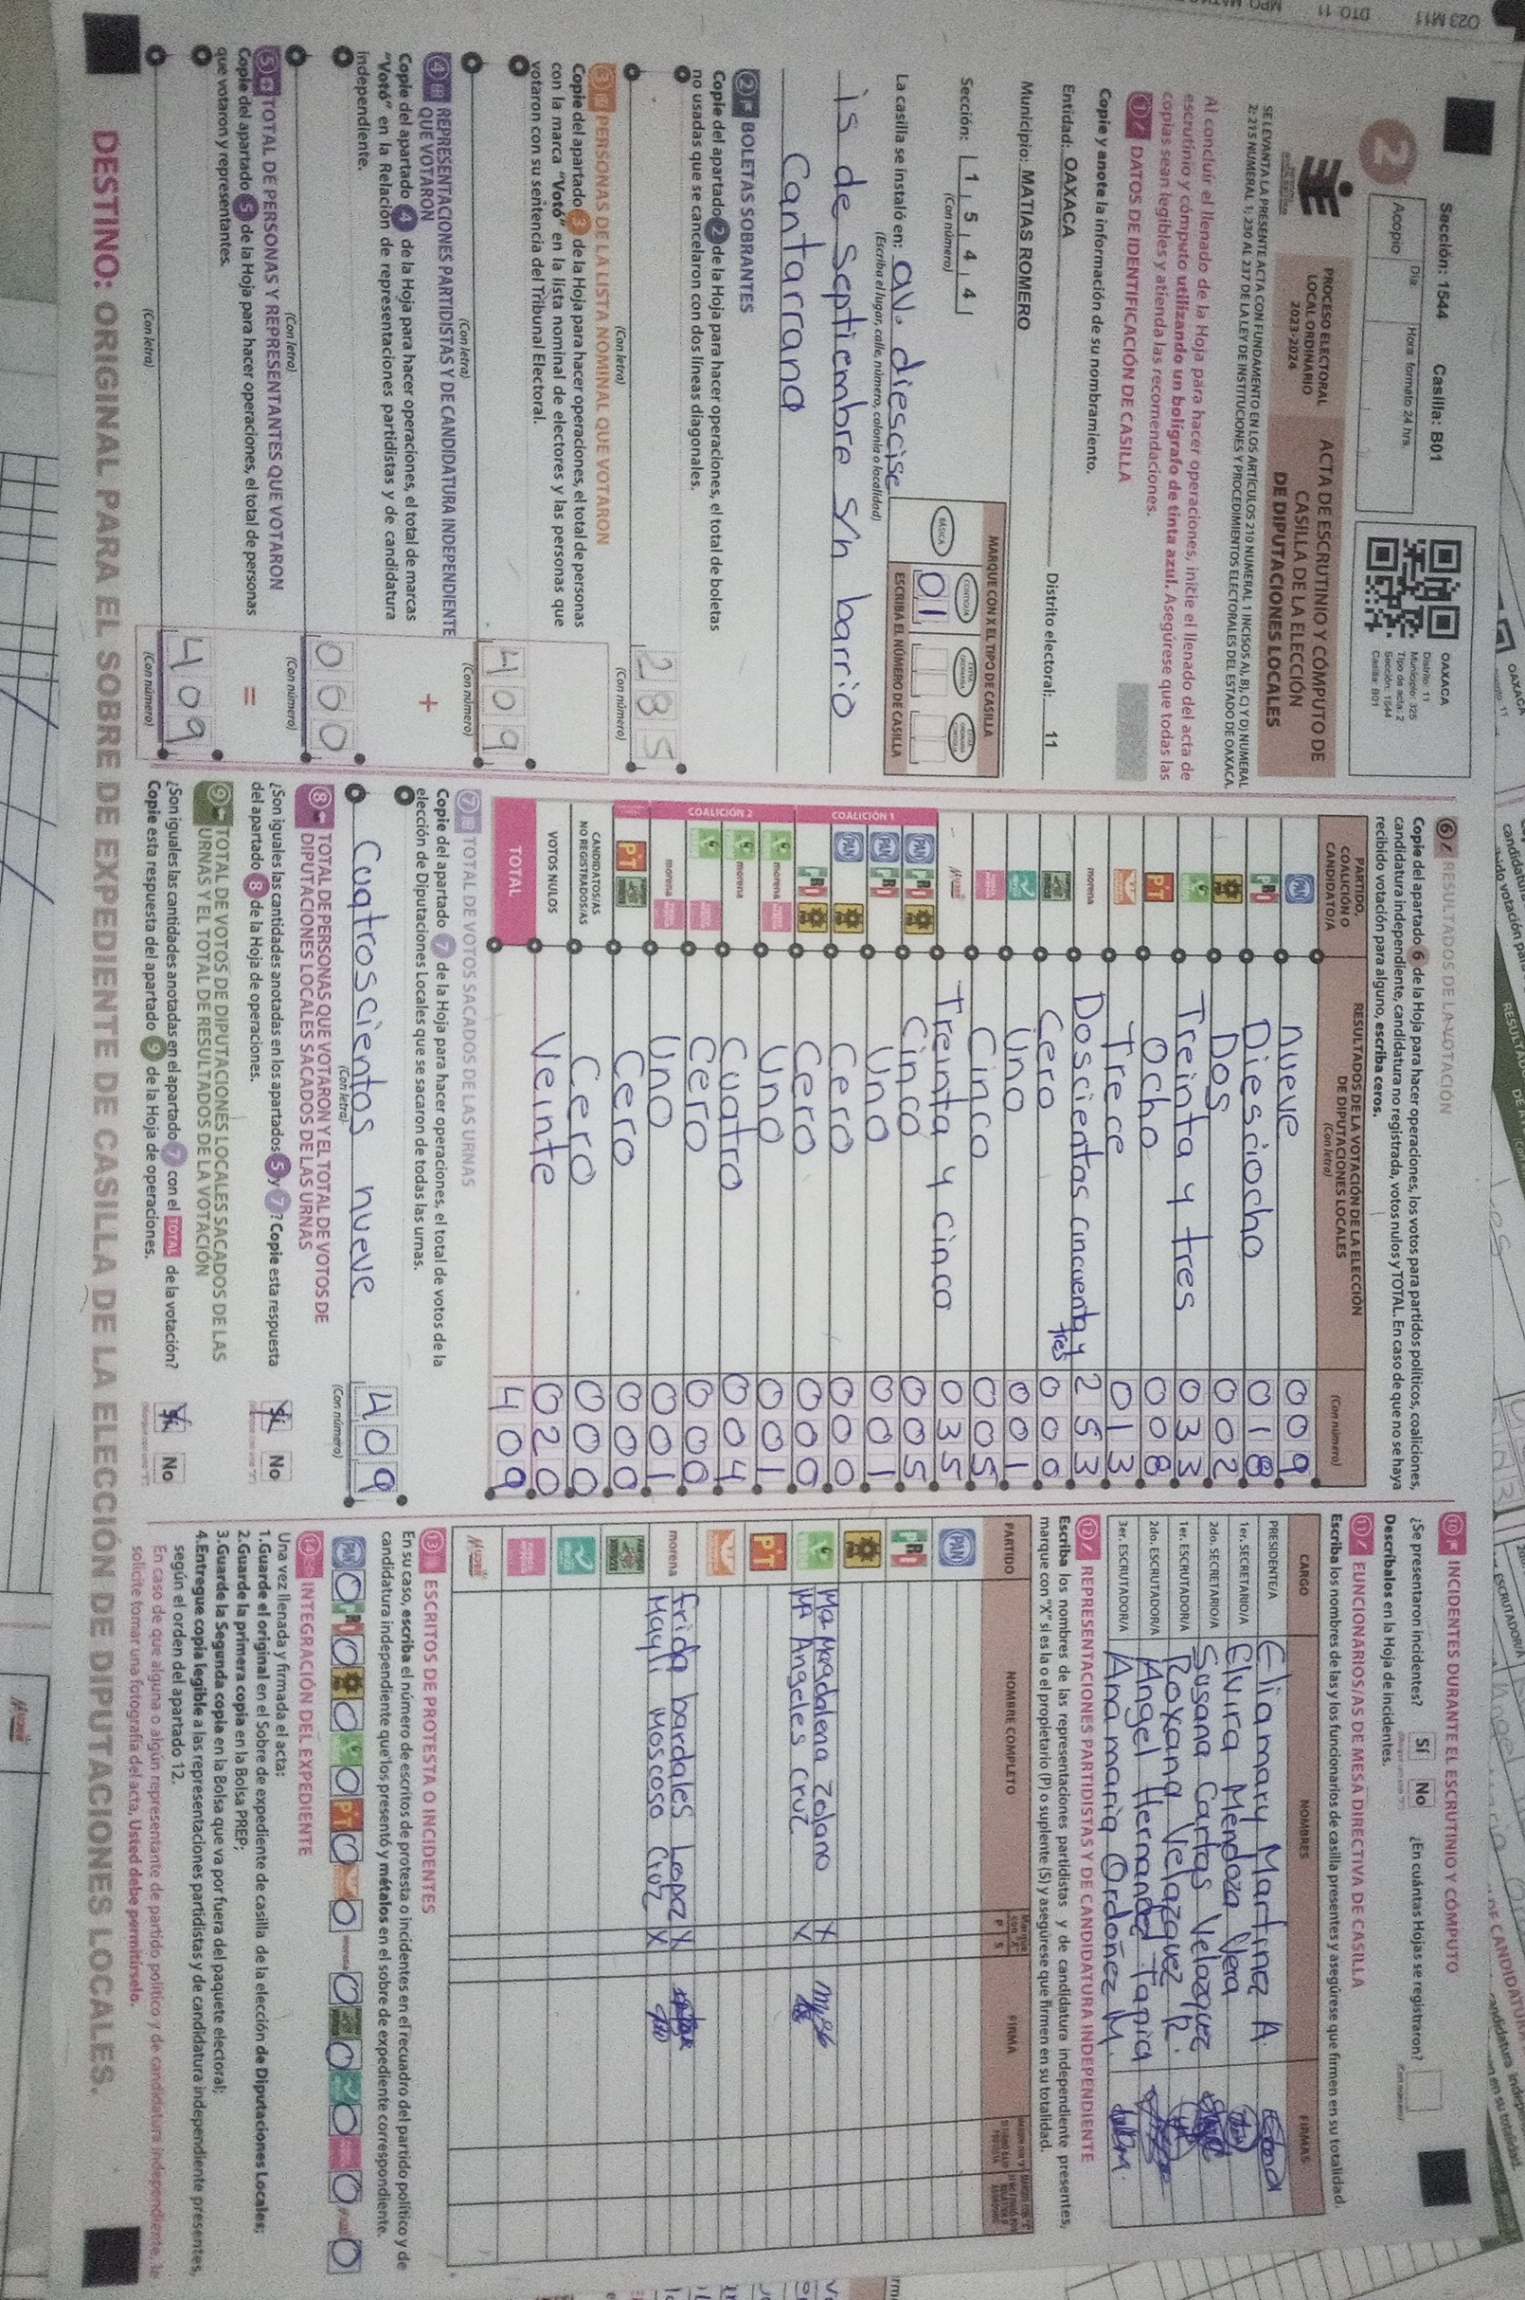 Sección: 1544 Casilla: B01
2
Acopio
Día
Hora formato 24 hrs.
OAXACA
Distrito: 11
Municipio: 325
Tipo de acta: 2
Sección: 1544
Casilla: B01
PROCESO ELECTORAL
LOCAL ORDINARIO
2023-2024
ACTA DE ESCRUTINIO Y CÓMPUTO DE
CASILLA DE LA ELECCIÓN
DE DIPUTACIONES LOCALES
SE LEVANTA LA PRESENTE ACTA CON FUNDAMENTO EN LOS ARTÍCULOS 210 NUMERAL 1 INCISOS A), B), C) Y D) NUMERAL
2; 215 NUMERAL 1; 230 AL 237 DE LA LEY DE INSTITUCIONES Y PROCEDIMIENTOS ELECTORALES DEL ESTADO DE OAXACA.
Al concluir el llenado de la Hoja para hacer operaciones, inicie el llenado del acta de
escrutinio y cómputo utilizando un bolígrafo de tinta azul. Asegúrese que todas las
copias sean legibles y atienda las recomendaciones.
1 DATOS DE IDENTIFICACIÓN DE CASILLA
Copie y anote la información de su nombramiento.
Entidad: OAXACA Distrito electoral: 11
Municipio: MATIAS ROMERO
Sección: 1 5 4 4
(Con número)
MARQUE CON X EL TIPO DE CASILLA
BÁSICA
CONTIGUA
01
ESCRIBA EL NÚMERO DE CASILLA
La casilla se instaló en: av. diescise
(Escriba el lugar, calle, número, colonia o localidad)
is de septiembre s/n barrio
Cantarrana
2 BOLETAS SOBRANTES
Copie del apartado 2 de la Hoja para hacer operaciones, el total de boletas
no usadas que se cancelaron con dos líneas diagonales.
285
(Con letra) (Con número)
3 PERSONAS DE LA LISTA NOMINAL QUE VOTARON
Copie del apartado 3 de la Hoja para hacer operaciones, el total de personas
con la marca "Votó" en la lista nominal de electores y las personas que
votaron con su sentencia del Tribunal Electoral.
409
(Con letra) (Con número)
4 REPRESENTACIONES PARTIDISTAS Y DE CANDIDATURA INDEPENDIENTE
QUE VOTARON
+
Copie del apartado 4 de la Hoja para hacer operaciones, el total de marcas
"Votó" en la Relación de representaciones partidistas y de candidatura
independiente.
000
(Con letra) (Con número)
5 TOTAL DE PERSONAS Y REPRESENTANTES QUE VOTARON
=
Copie del apartado 5 de la Hoja para hacer operaciones, el total de personas
que votaron y representantes.
409
(Con letra) (Con número)
6 RESULTADOS DE LA VOTACIÓN
Copie del apartado 6 de la Hoja para hacer operaciones, los votos para partidos políticos, coaliciones,
candidatura independiente, candidatura no registrada, votos nulos y TOTAL. En caso de que no se haya
recibido votación para alguno, escriba ceros.
PARTIDO, COALICIÓN O CANDIDATO/A
RESULTADOS DE LA VOTACIÓN DE LA ELECCIÓN DE DIPUTACIONES LOCALES
(Con letra) (Con número)
PAN nueve 009
PRI Diesciocho 018
PRD Dos 002
Treinta y tres 033
PT Ocho 008
Trece 013
morena Doscientos cincuenta y tres 253
Cero 000
Uno 001
Cinco 005
Treinta y cinco 035
COALICIÓN 1
PAN PRI PRD Cinco 005
PAN PRI Uno 001
PAN PRD Cero 000
PRI PRD Cero 000
COALICIÓN 2
morena Uno 001
morena Cuatro 004
Cero 000
morena Uno 001
PT Cero 000
CANDIDATOS/AS NO REGISTRADOS/AS Cero 000
VOTOS NULOS Veinte 020
TOTAL 409
7 TOTAL DE VOTOS SACADOS DE LAS URNAS
Copie del apartado 7 de la Hoja para hacer operaciones, el total de votos de la
elección de Diputaciones Locales que se sacaron de todas las urnas.
Cuatroscientos nueve 409
(Con letra) (Con número)
8 TOTAL DE PERSONAS QUE VOTARON Y EL TOTAL DE VOTOS DE
DIPUTACIONES LOCALES SACADOS DE LAS URNAS
¿Son iguales las cantidades anotadas en los apartados 5 y 7? Copie esta respuesta
del apartado 8 de la Hoja de operaciones.
Sí No
9 TOTAL DE VOTOS DE DIPUTACIONES LOCALES SACADOS DE LAS
URNAS Y EL TOTAL DE RESULTADOS DE LA VOTACIÓN
¿Son iguales las cantidades anotadas en el apartado 7 con el TOTAL de la votación?
Copie esta respuesta del apartado 9 de la Hoja de operaciones.
Sí No
10 INCIDENTES DURANTE EL ESCRUTINIO Y CÓMPUTO
¿Se presentaron incidentes? Sí No ¿En cuántas Hojas se registraron?
Descríbalos en la Hoja de incidentes.
11 FUNCIONARIOS/AS DE MESA DIRECTIVA DE CASILLA
Escriba los nombres de las y los funcionarios de casilla presentes y asegúrese que firmen en su totalidad.
CARGO NOMBRES FIRMAS
PRESIDENTE/A Eliamary Martinez A.
1er. SECRETARIO/A Elvira Mendoza Vera
2do. SECRETARIO/A Susana Cartas Velazquez
1er. ESCRUTADOR/A Roxana Velazquez R.
2do. ESCRUTADOR/A Angel Hernandez Tapia
3er. ESCRUTADOR/A Ana maria Ordoñez M.
12 REPRESENTACIONES PARTIDISTAS Y DE CANDIDATURA INDEPENDIENTE
Escriba los nombres de las representaciones partidistas y de candidatura independiente presentes,
marque con "X" si es la o el propietario (P) o suplente (S) y asegúrese que firmen en su totalidad.
PARTIDO NOMBRE COMPLETO P S FIRMA
PAN
PRI
PRD
Ma Magdalena Zolano X
Ma Angeles Cruz X
PT
morena frida bardales Lopez X
Mayli moscoso Cruz X
13 ESCRITOS DE PROTESTA O INCIDENTES
En su caso, escriba el número de escritos de protesta o incidentes en el recuadro del partido político y de
candidatura independiente que los presentó y métalos en el sobre de expediente correspondiente.
PAN 0 PRI 0 0 0 PT 0 0 morena 0 0 0 0 0
14 INTEGRACIÓN DEL EXPEDIENTE
Una vez llenada y firmada el acta:
1.Guarde el original en el Sobre de expediente de casilla de la elección de Diputaciones Locales;
2.Guarde la primera copia en la Bolsa PREP;
3.Guarde la Segunda copia en la Bolsa que va por fuera del paquete electoral;
4.Entregue copia legible a las representaciones partidistas y de candidatura independiente presentes,
según el orden del apartado 12.
En caso de que alguna o algún representante de partido político y de candidatura independiente, le
solicite tomar una fotografía del acta, Usted debe permitírselo.
DESTINO: ORIGINAL PARA EL SOBRE DE EXPEDIENTE DE CASILLA DE LA ELECCIÓN DE DIPUTACIONES LOCALES.